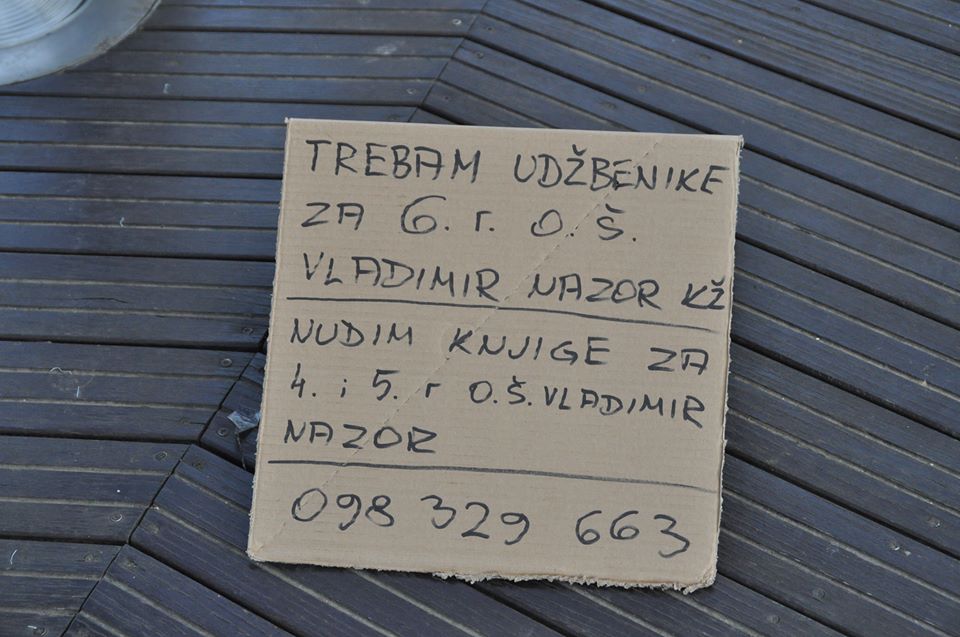 TREBAM UDŽBENIKE
ZA 6. r. O. Š.
VLADIMIR NAZOR KŽ
NUDIM KNJIGE ZA
4. i 5. r O.Š. VLADIMIR
NAZOR
098 329 663